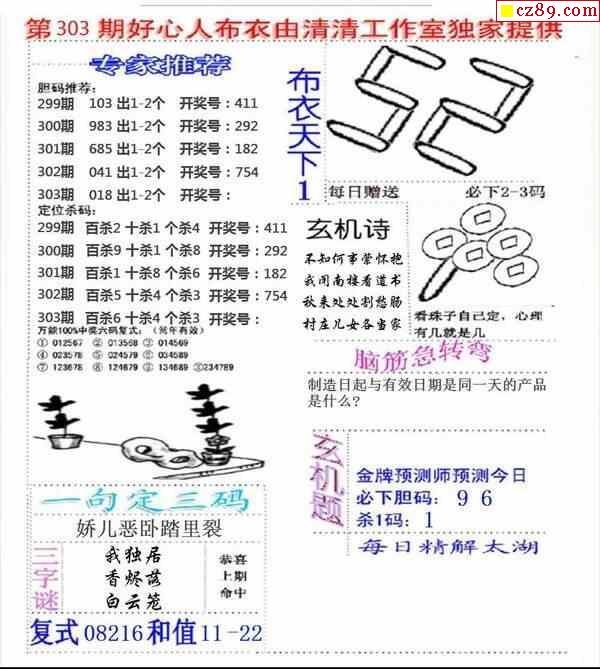 cz89.com
第303期好心人布衣由清清工作室独家提供
专家推荐
胆码推荐:
299期 103 出1-2个 开奖号:411
300期 983 出1-2个 开奖号:292
301期 685 出1-2个 开奖号:182
302期 041 出1-2个 开奖号:754
303期 018 出1-2个 开奖号:
定位杀码:
299期 百杀2 十杀1 个杀4 开奖号:411
300期 百杀9 十杀1 个杀8 开奖号:292
301期 百杀1 十杀8 个杀6 开奖号:182
302期 百杀5 十杀4 个杀2 开奖号:754
303期 百杀6 十杀4 个杀3 开奖号:
万能100%中奖六码复式:(常年有效)
① 012567 ② 013568 ③ 014569
④ 023578 ⑤ 024579 ⑥ 034589
⑦ 123678 ⑧ 124679 ⑨ 134689 ⑩234789
一句定三码
娇儿恶卧踏里裂
三字谜
我独居
香烬落
白云笼
恭喜
上期
命中
复式08216和值11-22
布衣天下1
52
每日赠送 必下2-3码
玄机诗
不知何事萦怀抱
我闭南楼看道书
秋来处处割愁肠
村庄儿女各当家
看珠子自己定,心理
有几就是几
脑筋急转弯
制造日起与有效日期是同一天的产品
是什么?
玄机题
金牌预测师预测今日
必下胆码:96
杀1码:1
每日精解太湖